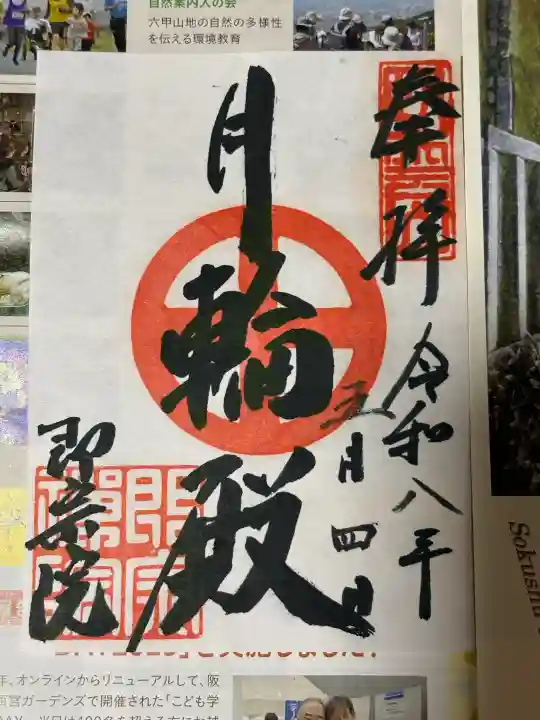 自然案内人の会
六甲山地の自然の多様性
を伝える環境教育
奉拝
令和八年
五月四日
月輪殿
即宗院
Sokushu
年、オンラインからリニューアルして、阪
西宮ガーデンズで開催された「こども学